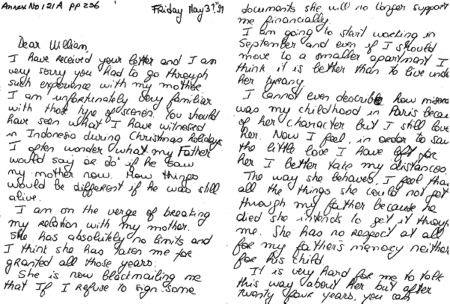 Annex No 121A pp 236
Friday May 31st 91
Dear William,
I have received your letter and I am
very sorry you had to go through
such experience with my mother.
I am unfortunately very familiar
with those type of scenes. You should
have seen what I have witnessed
in Indonesia during Christmas holidays
I often wonder what my Father
would say or do if he saw
my mother now. How things
would be different if he was still
alive.
I am on the verge of breaking
my relation with my mother.
She has absolutely no limits and
I think she has taken me for
granted all those years.
She is now blackmailing me
that If I refuse to sign some
documents she will no longer support
me financially.
I am going to start working in
September and even if I should
move to a smaller apartment I
think it is better than to live under
her tyranny
I cannot even describe how miserable
was my childhood in Paris because
of her character but I still love
her. Now I feel, in order to save
the little love I have left for
her I better take my distances
The way she behaves, I feel that
all the things she could not get
through my father because he
died she intends to get it through
me. She has no respect at all
for my father's memory neither
for his child
It is very hard for me to talk
this way about her but after
twenty four years, you can